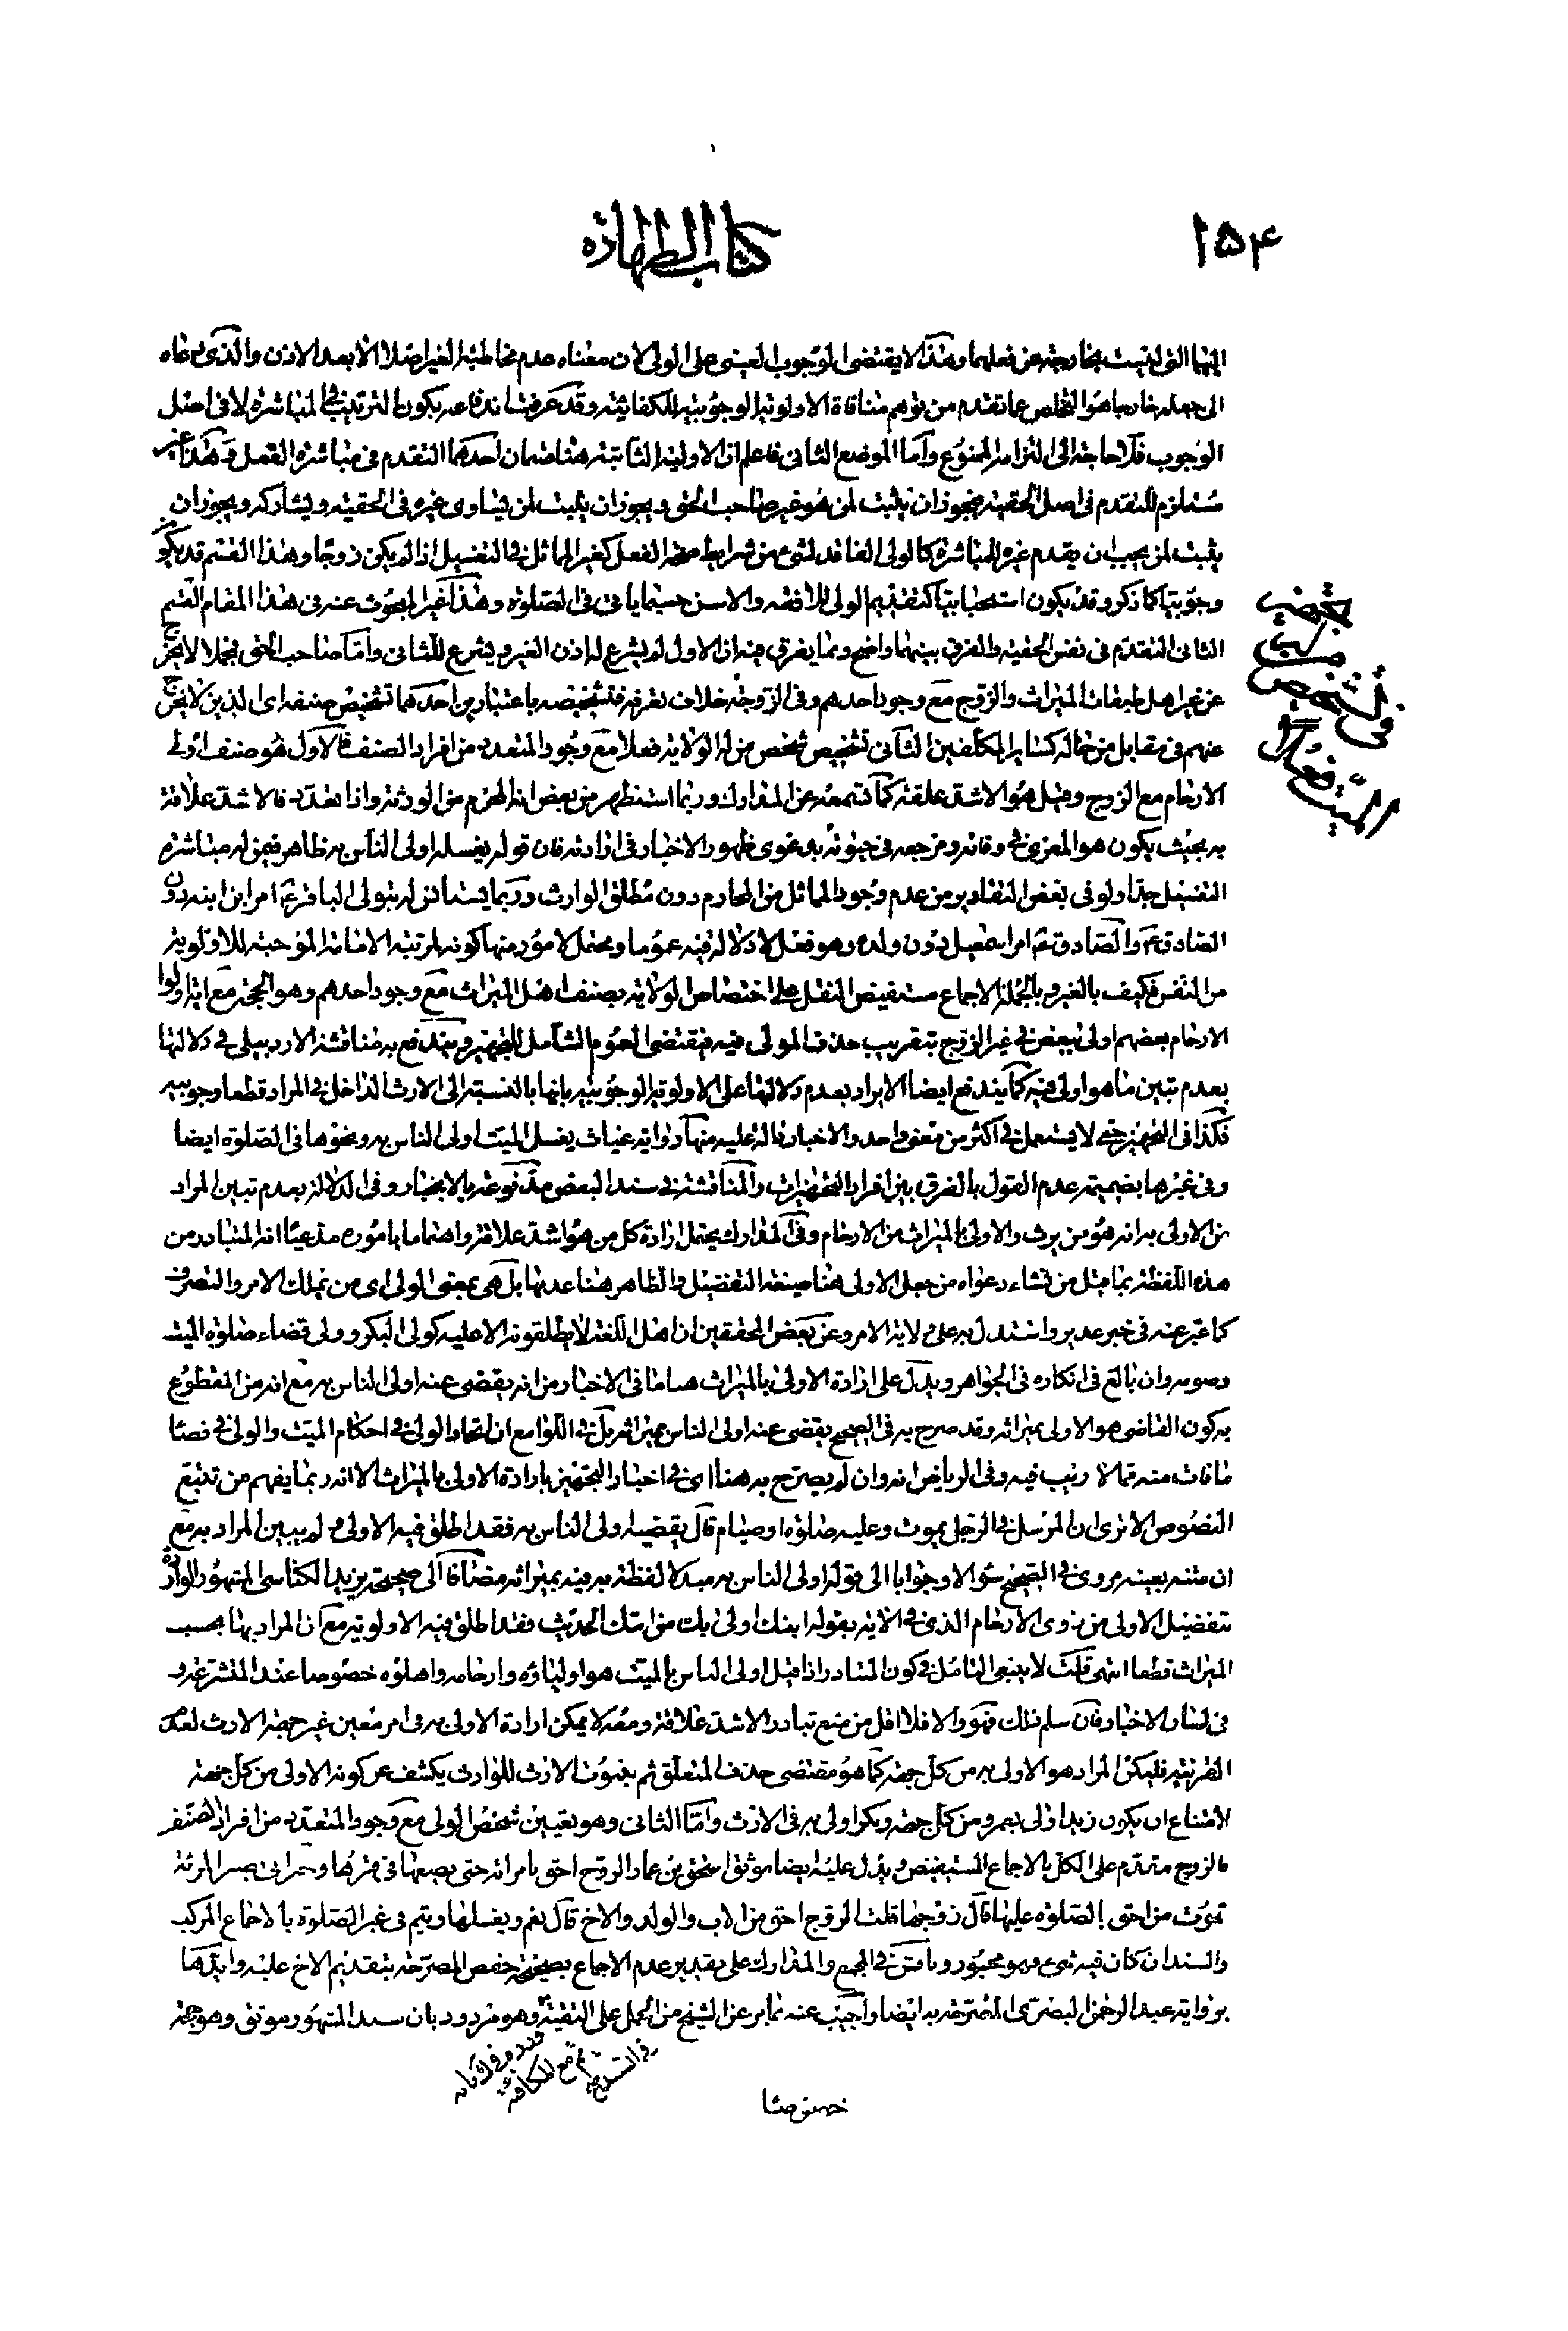 ١٥٤
كتاب الطهارة
اليهما التى ليست بخارجة عن فعلهما وهذا لا يقتضى الوجوب العينى على الولى لان معناه عدم مخاطبة الغير اصلا الا بعد الاذن والذى دعاه
الى جعله خارجا هو التخلص عما تقدم من توهم منافاة الاولوية الوجوبية للكفائية وقد عرفت اندفاعه بكون الترتيب فى المباشرة لا فى اصل
الوجوب فلا حاجة الى التزامه الممنوع واما الموضع الثانى فاعلم ان الاولية الثابتة هنا ضمان احدهما التقدم فى مباشرة الفعل وهذا غير
مستلزم للتقدم فى اصل الحقية فيجوز ان يثبت لمن هو غير صاحب الحق ويجوز ان يثبت لمن يساوى غيره فى الحقية ويشاركه ويجوز ان
يثبت لمن يجب ان يقدم غيره للمباشرة كالولى الفاقد لشئ من شرايط صحة الفعل كغير المماثل فى التغسيل اذا لم يكن زوجا وهذا القسم قد يكون
وجوبيا كما ذكر وقد يكون استحبابيا كتقديم الولى للافقه والاسن حسبما ياتى فى الصلوة وهذا غير المبحوث عنه فى هذا المقام القسم
الثانى التقدم فى نفس الحقية والفرق بينهما واضح ومما يفرق فيه ان الاول لم يشرع له اذن الغير ويشرع للثانى واما صاحب الحق فمجملا لا يخرج
عن غير اهل طبقات الميراث والزوج مع وجود احدهم وفى الزوجة خلاف تعرفه فتشخيصه باعتبارين احدهما تشخيص صنفه اى الذين لا يخرج
عنهم فى مقابل من خاله كسائر المكلفين الثانى تشخيص شخص من له الولاية فعلا مع وجود المتعدد من افراد الصنف فالاول هو صنف اولى
الارحام مع الزوج وقيل هو الاشد علقة كما تسمعه عن المدارك وربما استظهر من بعض انه المحرم من الورثة واذا تعدد فالاشد علاقة
به بحيث يكون هو المعزى فى وفاته ومرجعه فى حيوته بدعوى ظهور الاخبار فى ارادته فان قوله يغسله اولى الناس به ظاهر فيمن له مباشرة
التغسيل جدا ولو فى بعض التقادير من عدم وجود المماثل من المحارم دون مطلق الوارث وربما يستانس له بتولى الباقر ع امر ابن ابنه دون
الصادق ع والصادق ع امر اسمعيل دون ولده وهو فعل لا دلالة فيه عموما ومحتمل لامور منها كونه لمرتبة الامامة الموجبة للاولوية
من النفس فكيف بالغير وبالجملة الاجماع مستفيض النقل على اختصاص الولاية بصنف اهل الميراث مع وجود احدهم وهو الحجة مع اية اولوا
الارحام بعضهم اولى ببعض فى غير الزوج بتقريب حذف المولى فيه فيقتضى العموم الشامل للتجهيز ويندفع به مناقشة الاردبيلى فى دلالتها
بعدم تبين ما هو اولى فيه كما يندفع ايضا الايراد بعدم دلالتها على الاولوية الوجوبية بانها بالنسبة الى الارث الداخل فى المراد قطعا وجوبية
فكذا فى التجهيز حتى لا يستعمل فى اكثر من معنى واحد والاخبار دالة عليه منها رواية غياث يغسل الميت اولى الناس به ونحوها فى الصلوة ايضا
وفى غيرها بضميمة عدم القول بالفرق بين افراد التجهيزات والمناقشة فى سند البعض مدفوعة بالانجبار وفى الدلالة بعدم تبين المراد
من الاولى به انه هو من يرث والاولى بالميراث من الارحام وفى المدارك يحتمل ارادة كل من هو اشد علاقة واهتماما باموره مدعيا انه المتبادر من
هذه اللفظة بما قيل من نشاء دعواه من جعل الاولى هنا صيغة التفضيل والظاهر هنا عدمها بل هى بمعنى الولى اى من يملك الامر والتصرف
كما عبر عنه فى خبر غدير واستدل به على ولاية الامر وعن بعض المحققين ان اهل اللغة لا يطلقونه الا عليه كولى البكر وولى قضاء صلوة الميت
وصومه وان بالغ فى انكاره فى الجواهر ويدل على ارادة الاولى بالميراث هنا ما فى الاخبار من انه يقضى عنه اولى الناس به مع انه من المقطوع
به كون القاضى هو الاولى بميراثه وقد صرح به فى الصحيح يقضى عنه اولى الناس بميراثه بل فى اللوامع ان اتحاد الولى فى احكام الميت والولى فى قضاء
ما فات منه مما لا ريب فيه وفى الرياض انه وان لم يصرح به هنا اى فى اخبار التجهيز بارادة الاولى بالميراث الا انه ربما يفهم من تتبع
النصوص الا ترى ان المرسل فى الرجل يموت وعليه صلوة او صيام قال يقضيه اولى الناس به فقد اطلق فيه الاولى ولم يبين المراد به مع
ان متنه بعينه مروى فى الصحيح سؤالا وجوابا الى قوله اولى الناس به مبدلا لفظة به فيه بميراثه مضافا الى صحيحة يزيد الكناسى المشهور الواردة
بتفضيل الاولى من ذوى الارحام الذى فى الاية بقوله ابنك اولى بك من ابن ابنك الحديث فقد اطلق فيه الاولوية مع ان المراد بها بحسب
الميراث قطعا انتهى قلت لا ينبغى التامل فى كون المتبادر اذا قيل اولى الناس بالميت هو اولياؤه وارحامه واهلوه خصوصا عند المتشرعة و
فى لسان الاخبار فان سلم ذلك فهو والا فلا اقل من منع تبادر الاشد علاقة ومعه لا يمكن ارادة الاولى به فى امر معين غير جهة الارث لعدم
القرينة فليكن المراد هو الاولى به من كل جهة كما هو مقتضى حذف المتعلق ثم بثبوت الارث للوارث يكشف عن كونه الاولى من كل جهة
لامتناع ان يكون زيد اولى بعمرو من كل جهة وبكر اولى به فى الارث واما الثانى وهو تعيين شخص الولى مع وجود المتعدد من افراد الصنف
فالزوج متقدم على الكل بالاجماع المستفيض ويدل عليه ايضا موثق اسحق بن عمار الزوج احق بامراته حتى يضعها فى قبرها وخبر ابى بصير المرئة
تموت من احق بالصلوة عليها قال زوجها قلت الزوج احق من الاب والولد والاخ قال نعم ويغسلها ويتم فى غير الصلوة بالاجماع المركب
والسند ان كان فيه شئ فهو مجبور وناقش فى المجمع والمدارك على تقدير عدم الاجماع بصحيحة حفص المصرحة بتقديم الاخ عليه وايدها
برواية عبد الرحمن البصرى المصرحة به ايضا واجيب عنه بما مر عن الشيخ من الحمل على التقية وهو مردود بان سند المشهور موثق وهو حجة
فى تشخيص
الميت فعلا